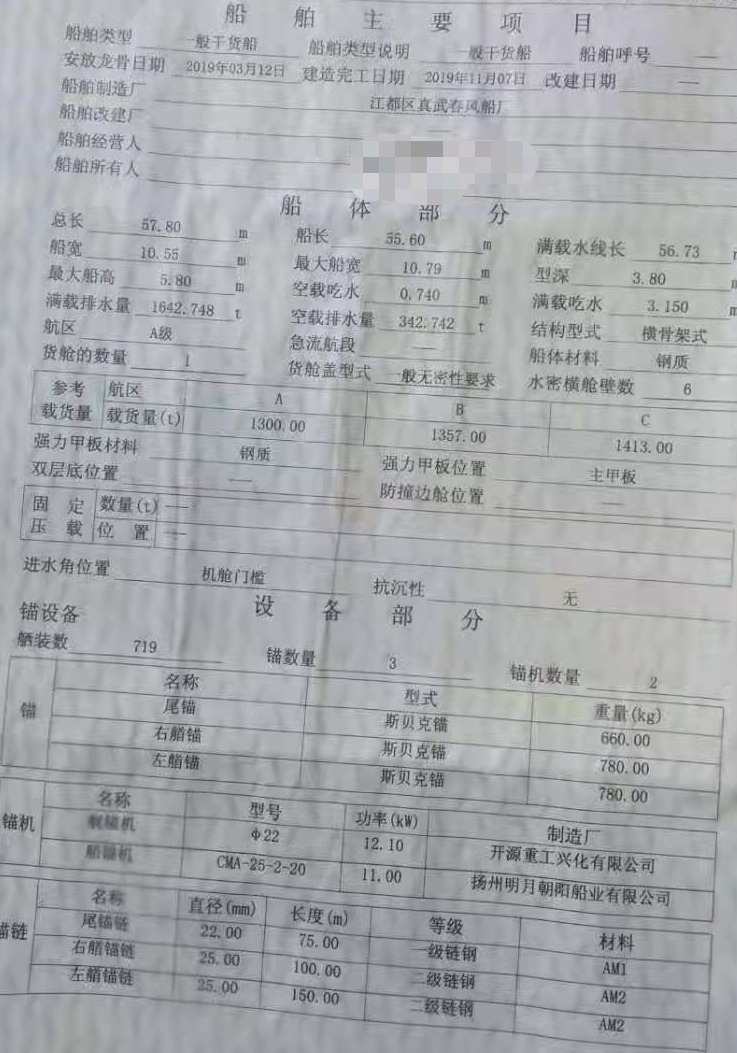 船舶主要项目
船舶类型 一般干货船 船舶类型说明 一般干货船 船舶呼号 —
安放龙骨日期 2019年03月12日 建造完工日期 2019年11月07日 改建日期 —
船舶制造厂 江都区真武春风船厂
船舶改建厂
船舶经营人
船舶所有人
船体部分
总长 57.80 m 船长 55.60 m 满载水线长 56.73
船宽 10.55 m 最大船宽 10.79 m 型深 3.80 m
最大船高 5.80 m 空载吃水 0.740 m 满载吃水 3.150 m
满载排水量 1642.748 t 空载排水量 342.742 t 结构型式 横骨架式
航区 A级 急流航段 船体材料 钢质
货舱的数量 1 货舱盖型式 一般无密性要求 水密横舱壁数 6
参考载货量 航区 A B C
载货量(t) 1300.00 1357.00 1413.00
强力甲板材料 钢质 强力甲板位置 主甲板
双层底位置 — 防撞边舱位置 —
固定压载 数量(t) —
位置 —
进水角位置 机舱门槛 抗沉性 无
设备部分
锚设备
舾装数 719 锚数量 3 锚机数量 2
锚 名称 型式 重量(kg)
尾锚 斯贝克锚 660.00
右艏锚 斯贝克锚 780.00
左艏锚 斯贝克锚 780.00
锚机 名称 型号 功率(kW) 制造厂
φ22 12.10 开源重工兴化有限公司
CMA-25-2-20 11.00 扬州明月朝阳船业有限公司
锚链 名称 直径(mm) 长度(m) 等级 材料
尾锚链 22.00 75.00 一级链钢 AM1
右艏锚链 25.00 100.00 二级链钢 AM2
左艏锚链 25.00 150.00 二级链钢 AM2